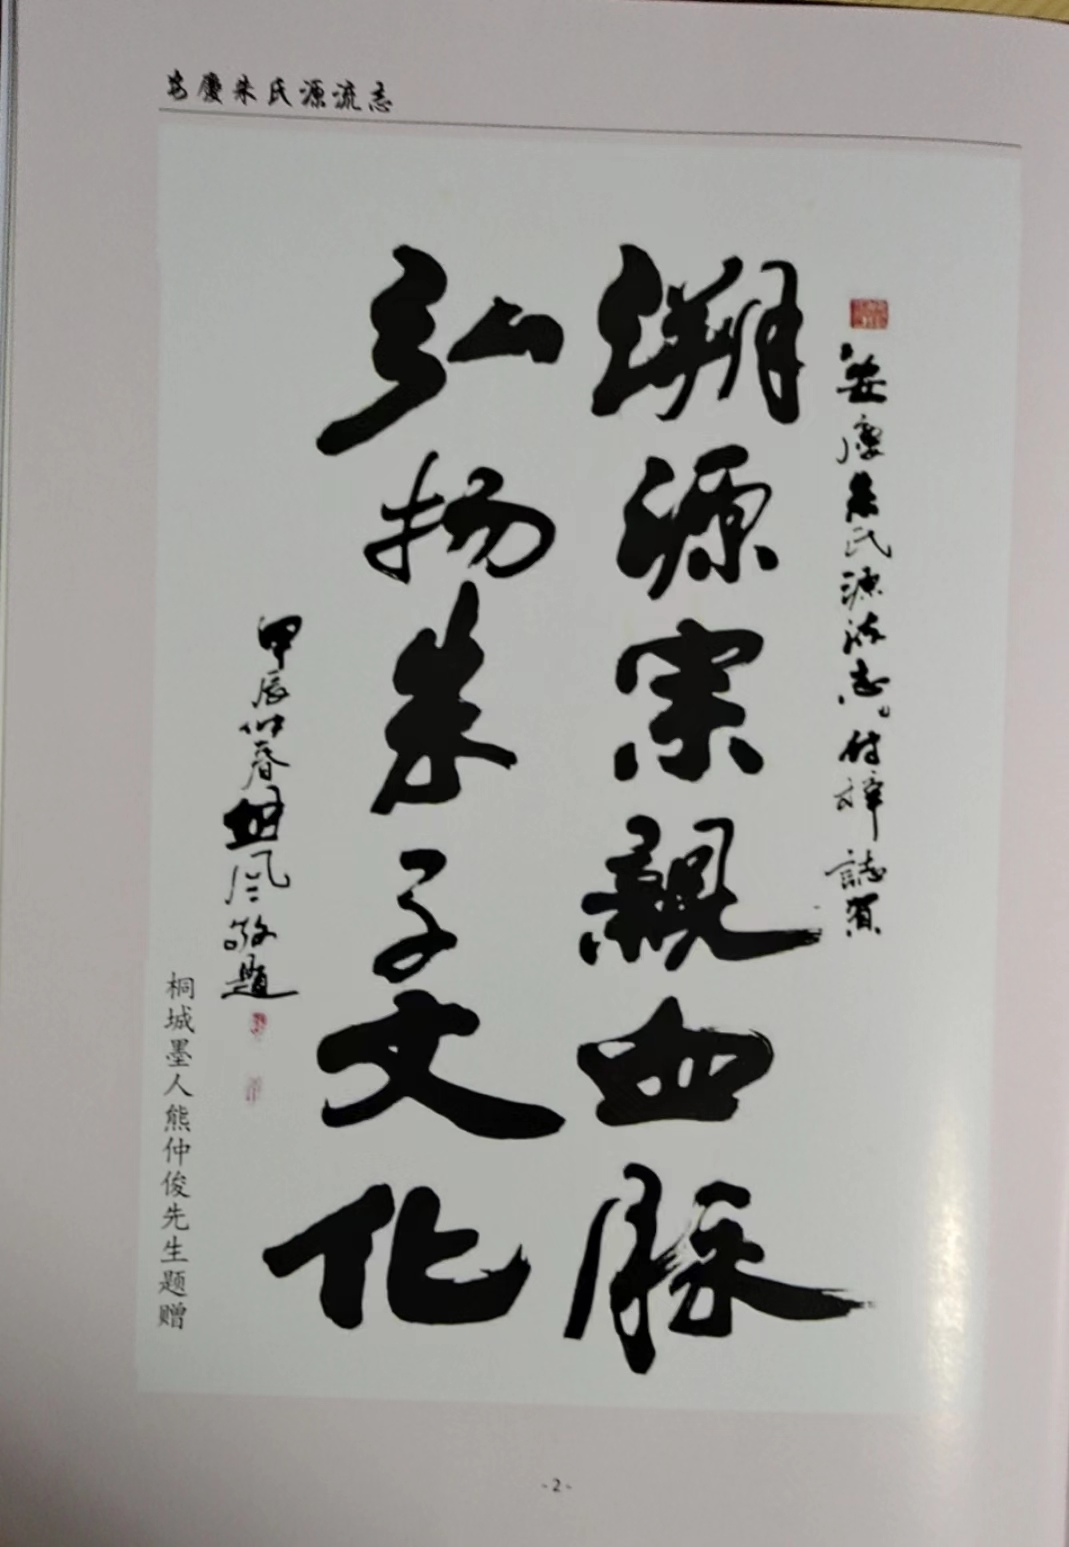 安慶朱氏源流志
安慶朱氏源流志付梓誌賀
溯源宗親血脉
弘扬朱子文化
甲辰仲春 风敬题
桐城墨人熊仲俊先生题赠
- 2 -